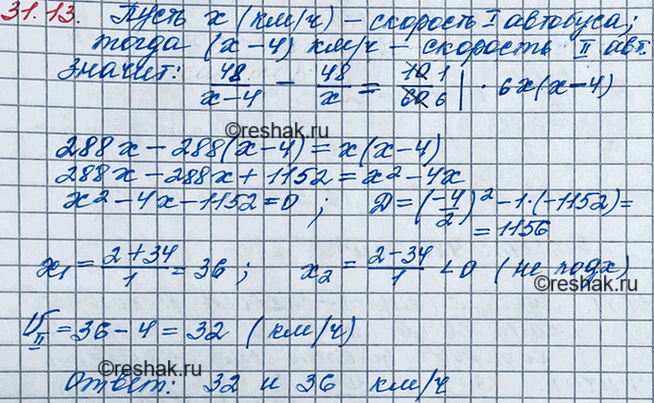 31.13. Пусть x (км/ч) – скорость I автобуса;
тогда (x–4) км/ч – скорость II авт.
Значит: 48/(x–4) – 48/x = 10 1/60 6 | · 6x(x–4)
©reshak.ru
288x – 288(x–4) = x(x–4)
288x – 288x + 1152 = x² – 4x
x² – 4x – 1152 = 0 ; D = (–4/2)² – 1·(–1152) =
= 1156
©reshak.ru
x₁ = (2+34)/1 = 36 ; x₂ = (2–34)/1 < 0 (не подх)
V_II = 36 – 4 = 32 (км/ч)
©reshak.ru
Ответ: 32 и 36 км/ч